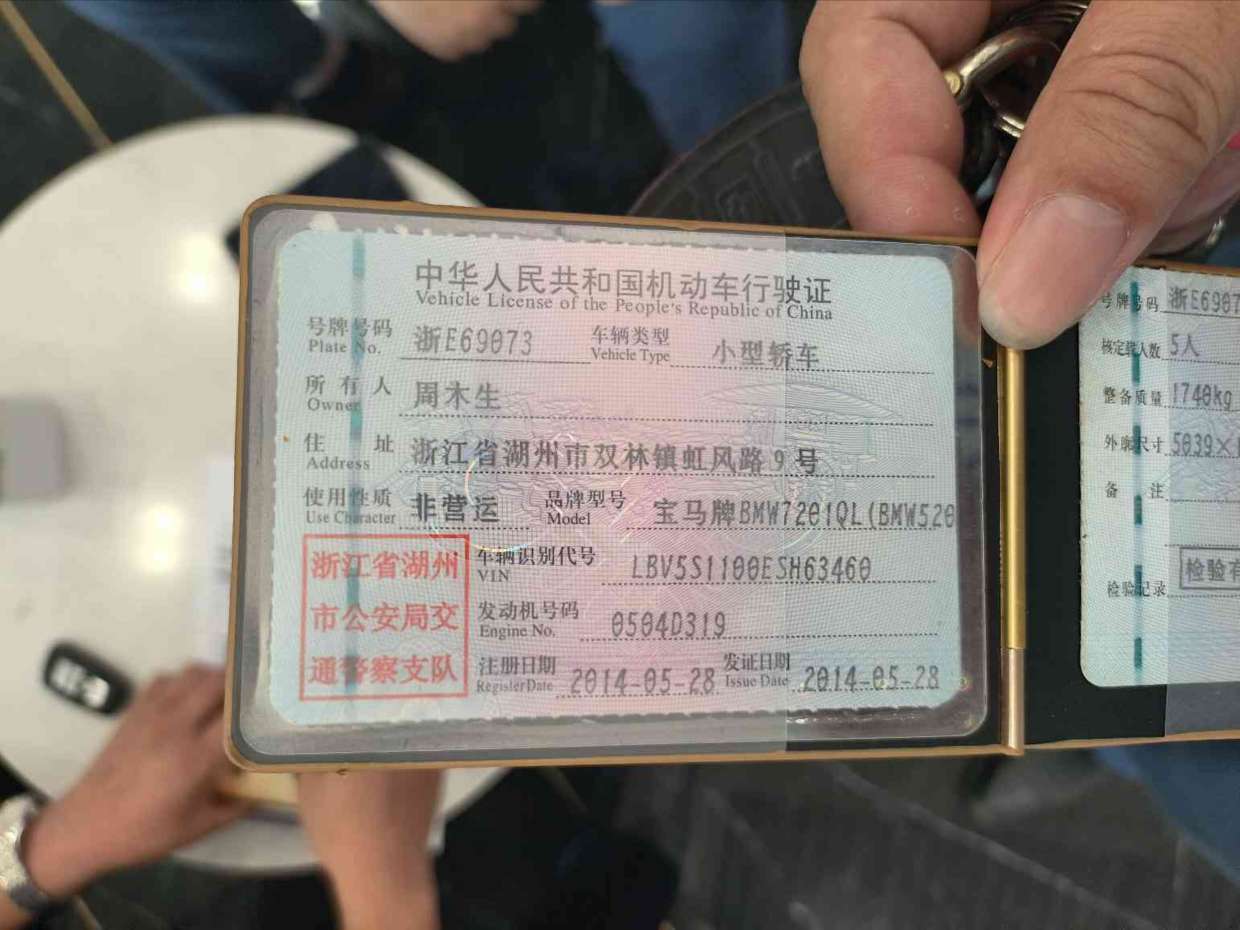 中华人民共和国机动车行驶证
Vehicle License of the People's Republic of China
号牌号码 浙E69073 车辆类型 小型轿车
Plate No. Vehicle Type
所有人 周木生
Owner
住址 浙江省湖州市双林镇虹风路9号
Address
使用性质 非营运 品牌型号 宝马牌BMW7201QL(BMW520
Use Character Model
浙江省湖州
市公安局交
通警察支队
车辆识别代号 LBV5S1100ESH63460
VIN
发动机号码 0504D319
Engine No.
注册日期 2014-05-28 发证日期 2014-05-28
Register Date Issue Date
号牌号码 浙E6907
核定载人数 5人
整备质量 1740kg
外廓尺寸 5039×
备注
检验记录 检验有